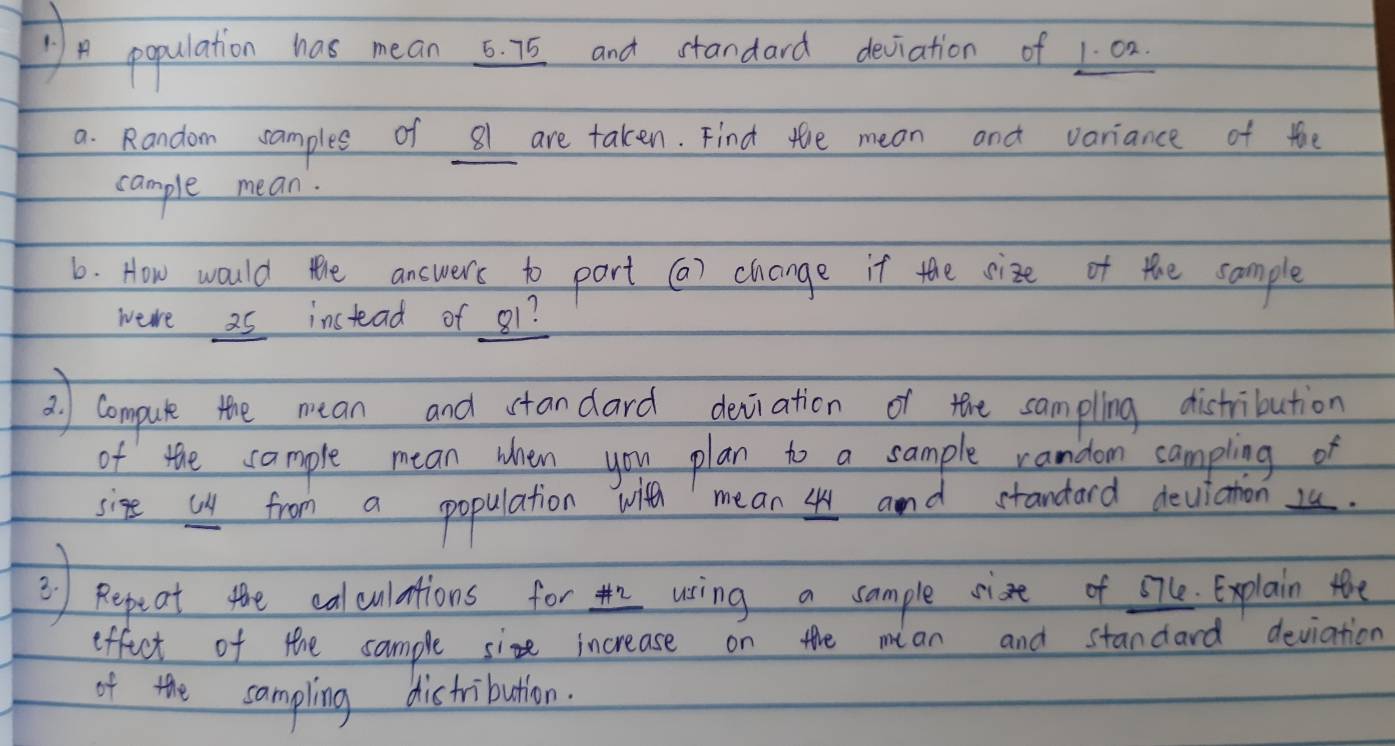 1.) A population has mean 5.75 and standard deviation of 1.02.
a. Random samples of 81 are taken. Find the mean and variance of the
sample mean.
b. How would the answers to part (a) change if the size of the sample
were 25 instead of 81?
2.) Compute the mean and standard deviation of the sampling distribution
of the sample mean when you plan to a sample random sampling of
size 64 from a population with mean 44 and standard deviation
3.) Repeat the calculations for #2 using a sample size of 576. Explain the
effect of the sample size increase on the mean and standard deviation
of the sampling distribution.